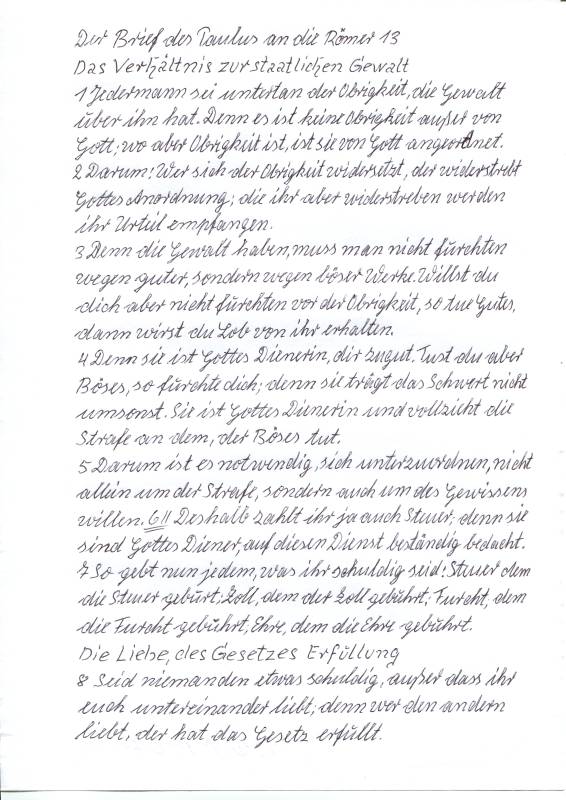 Der Brief des Paulus an die Römer 13
Das Verhältnis zur staatlichen Gewalt
1 Jedermann sei untertan der Obrigkeit, die Gewalt
über ihn hat. Denn es ist keine Obrigkeit außer von
Gott; wo aber Obrigkeit ist, ist sie von Gott angeordnet.
2 Darum: Wer sich der Obrigkeit widersetzt, der widerstrebt
Gottes Anordnung; die ihr aber widerstreben werden
ihr Urteil empfangen.
3 Denn die Gewalt haben, muss man nicht fürchten
wegen guter, sondern wegen böser Werke. Willst du
dich aber nicht fürchten vor der Obrigkeit, so tue Gutes,
dann wirst du Lob von ihr erhalten.
4 Denn sie ist Gottes Dienerin, dir zugut. Tust du aber
Böses, so fürchte dich; denn sie trägt das Schwert nicht
umsonst. Sie ist Gottes Dienerin und vollzieht die
Strafe an dem, der Böses tut.
5 Darum ist es notwendig, sich unterzuordnen, nicht
allein um der Strafe, sondern auch um des Gewissens
willen. 6!! Deshalb zahlt ihr ja auch Steuer; denn sie
sind Gottes Diener, auf diesen Dienst beständig bedacht.
7 So gebt nun jedem, was ihr schuldig seid: Steuer dem
die Steuer gebürt; Zoll, dem der Zoll gebührt; Furcht, dem
die Furcht gebührt, Ehre, dem die Ehre gebührt.
Die Liebe, des Gesetzes Erfüllung
8 Seid niemanden etwas schuldig, außer dass ihr
euch untereinander liebt; denn wer den andern
liebt, der hat das Gesetz erfüllt.